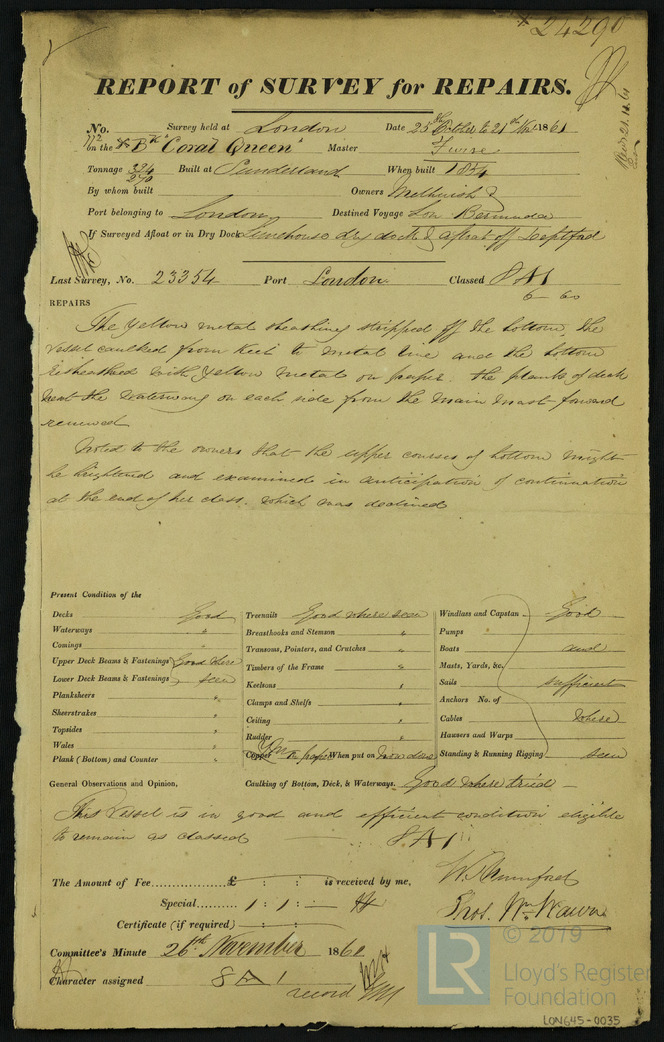 24290
REPORT of SURVEY for REPAIRS.
No. Survey held at London Date 25th October to 21st Nov 1861
on the Bk "Coral Queen" Master
Tonnage 324 Built at Sunderland When built 1854
270
By whom built Owners Melhuish
Port belonging to London Destined Voyage Lon Bermuda
If Surveyed Afloat or in Dry Dock Limehouse dry dock & afloat off Deptford
Last Survey, No. 23354 Port London Classed 8 A 1
6 - 60
REPAIRS
The Yellow metal sheathing stripped off the bottom, the
vessel caulked from Keel to metal line and the bottom
resheathed with yellow metal on paper. the planks of deck
next the waterway on each side from the main mast forward
renewed
Noted to the owners that the upper courses of bottom might
be heightened and examined in anticipation of continuation
at the end of her class, which was declined
Present Condition of the
Decks Good
Waterways "
Comings "
Upper Deck Beams & Fastenings Good where
Lower Deck Beams & Fastenings seen
Planksheers "
Sheerstrakes "
Topsides "
Wales "
Plank (Bottom) and Counter "
Treenails Good where seen
Breasthooks and Stemson "
Transoms, Pointers, and Crutches "
Timbers of the Frame "
Keelsons "
Clamps and Shelfs "
Ceiling "
Rudder "
Copper YM on paper When put on now done
Windlass and Capstan Good
Pumps
Boats and
Masts, Yards, &c.
Sails sufficient
Anchors No. of
Cables where
Hausers and Warps
Standing & Running Rigging seen
General Observations and Opinion, Caulking of Bottom, Deck, & Waterways. Good where tried
This Vessel is in good and efficient condition eligible
to remain as classed 8 A 1
The Amount of Fee............£ : : is received by me,
Special......... 1 : 1 : -
Thos. Wm. Wawn
Certificate (if required) : :
Committee's Minute 26th November 1861
Character assigned 8 A 1
record
© 2019
LR
Lloyd's Register
Foundation
LON645-0035